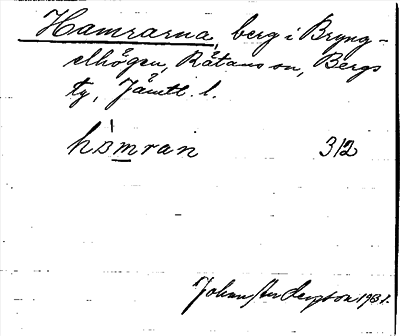 Hamrarna, berg i Bryng-
elhögen, Råtans sn, Bergs
tg, Jämtl. l.
hàmran 312
Johan Andersson 1931.